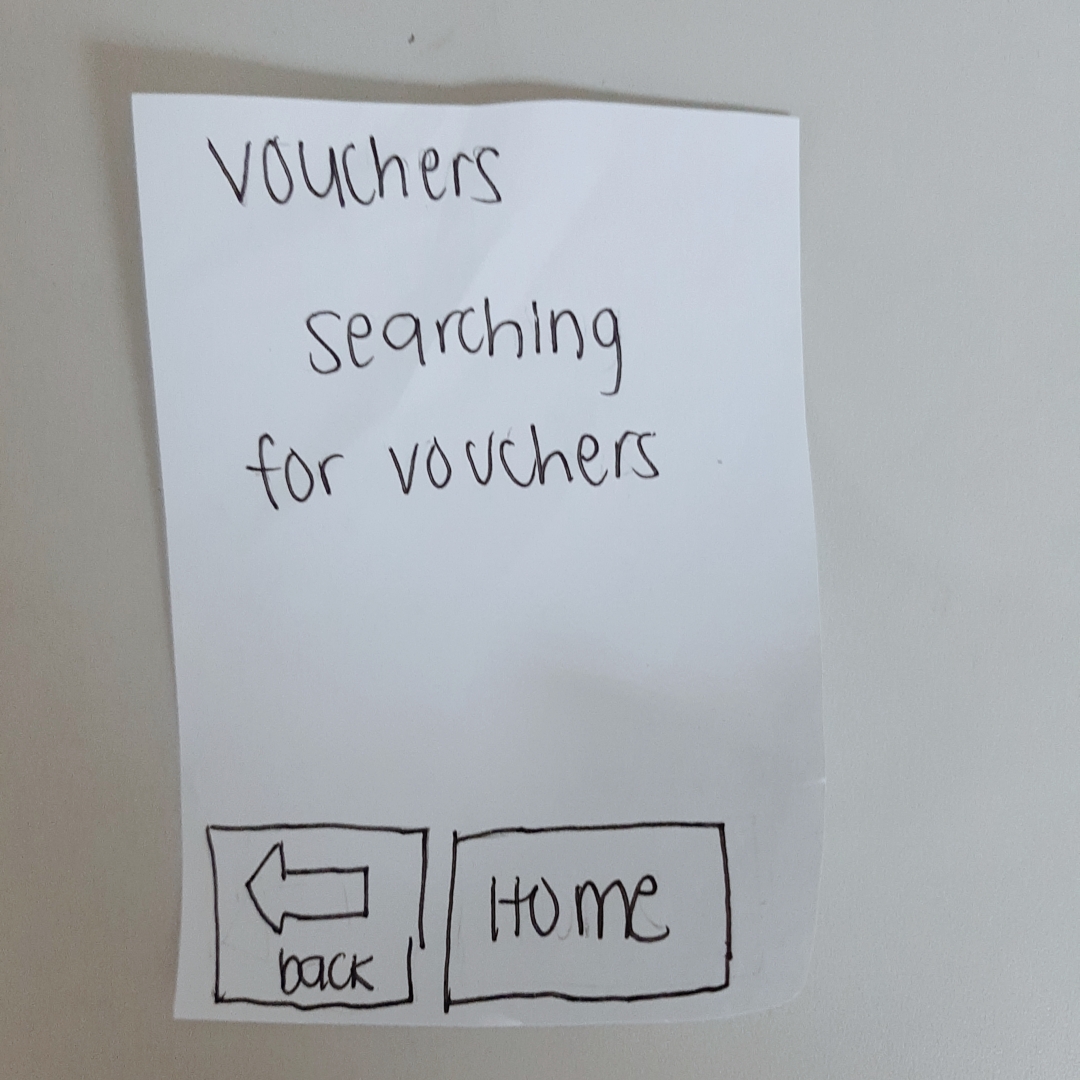 vouchers
searching
for vouchers
back
Home